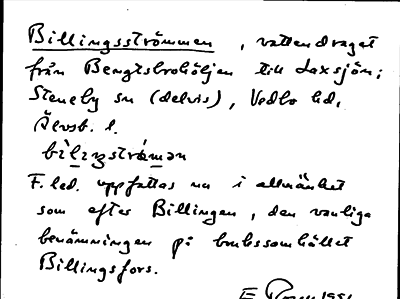 Billingsströmmen, vattendraget
från Bengtsbrohöljen till Laxsjön;
Steneby sn (delvis), Vedbo hd,
Älvsb. l.
bìliŋstrǿmən
F. led. uppfattas nu i allmänhet
som efter Billingen, den vanliga
benämningen på brukssamhället
Billingsfors.
E. 1991